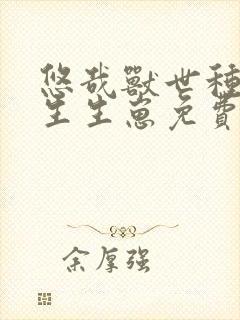 悠哉獸世種
生生崽免費
余厚强